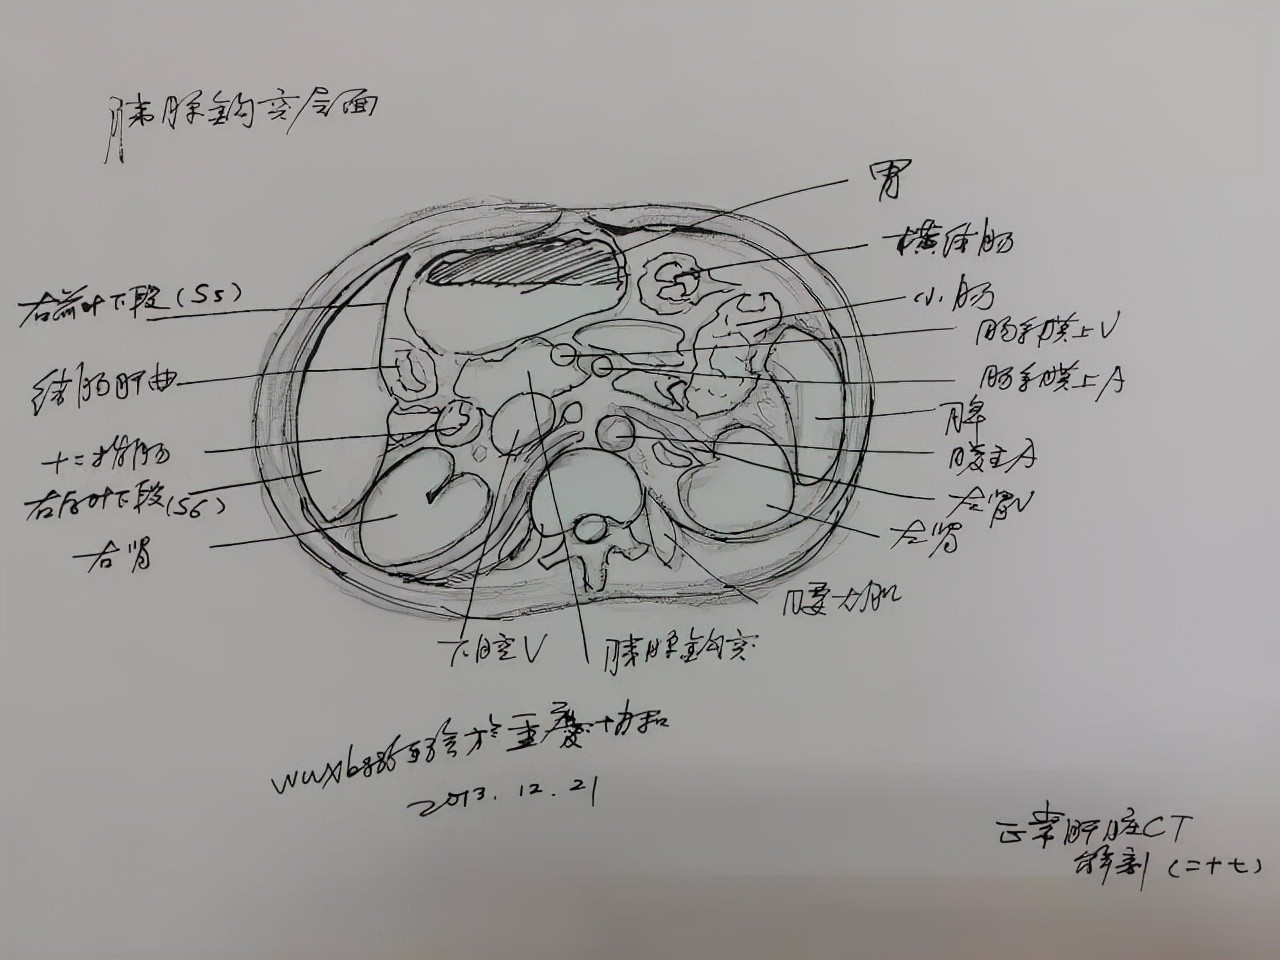 胰腺钩突层面
胃
横结肠
小肠
肠系膜上V
肠系膜上A
脾
腹主A
左肾V
左肾
腰大肌
右前叶下段(S5)
结肠肝曲
十二指肠
右后叶下段(S6)
右肾
下腔V
胰腺钩突
绘于重庆协和
2013.12.21
正常腹腔CT
解剖(二十七)